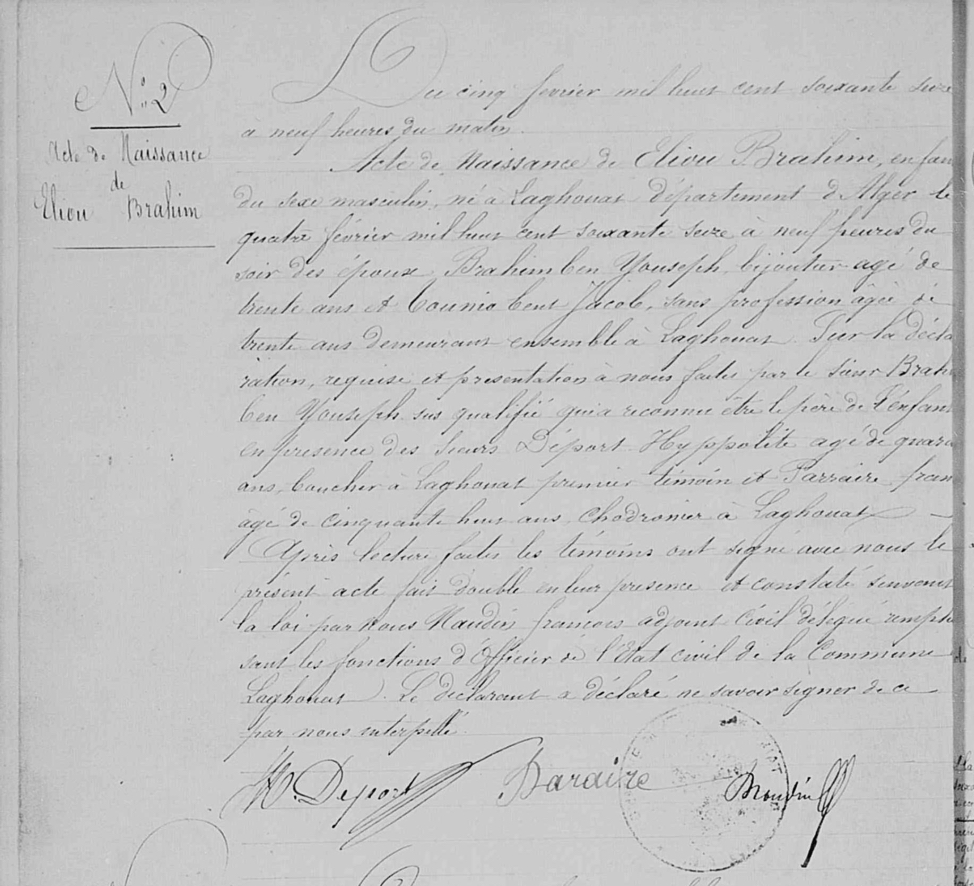 N.º 2
Acte de Naissance
de
Eliou Brahim
Du cinq février mil huit cent soixante seize
a neuf heures du matin.
Acte de Naissance de Eliou Brahim, enfan
du sexe masculin, né à Laghouat département d'Alger le
quatre février mil huit cent soixante seize à neuf heures du
soir des époux Brahim ben Youseph, bijoutier agé de
trente ans et Toumia bent Jacob, sans profession âgée de
trente ans demeurant ensemble à Laghouat. Sur la décla
ration, requise et présentation à nous faites par le sieur Brahi
ben Youseph sus qualifié qui a reconnu être le père de l'enfant
en présence des sieurs Déport Hyppolite agé de quara
ans, boucher à Laghouat premier témoin et Parraire fran
âgé de cinquante huit ans chodronier à Laghouat
Après lecture faites les témoins ont signé avec nous le
présent acte fait double en leur présence et constaté suivant
la loi par Nous Maudin francois adjoint civil délégué remplis
sant les fonctions d'Officier de l'Etat civil de la Commune
Laghouat. Le déclarant a déclaré ne savoir signer de ce
par nous interpellé.
H. Deport Baraire Maudin